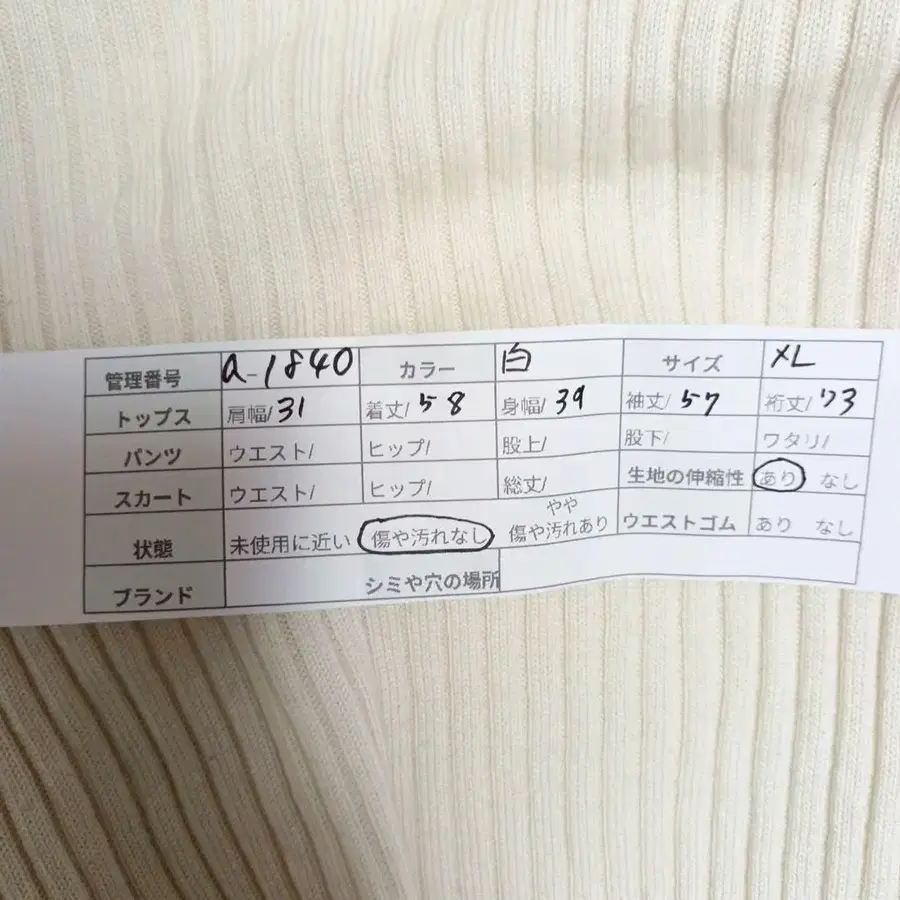 管理番号 a-1840 カラー 白 サイズ XL
トップス 肩幅/31 着丈/58 身幅/39 袖丈/57 裄丈/73
パンツ ウエスト/ ヒップ/ 股上/ 股下/ ワタリ/
スカート ウエスト/ ヒップ/ 総丈/ 生地の伸縮性 あり なし
状態 未使用に近い 傷や汚れなし やや傷や汚れあり ウエストゴム あり なし
ブランド シミや穴の場所